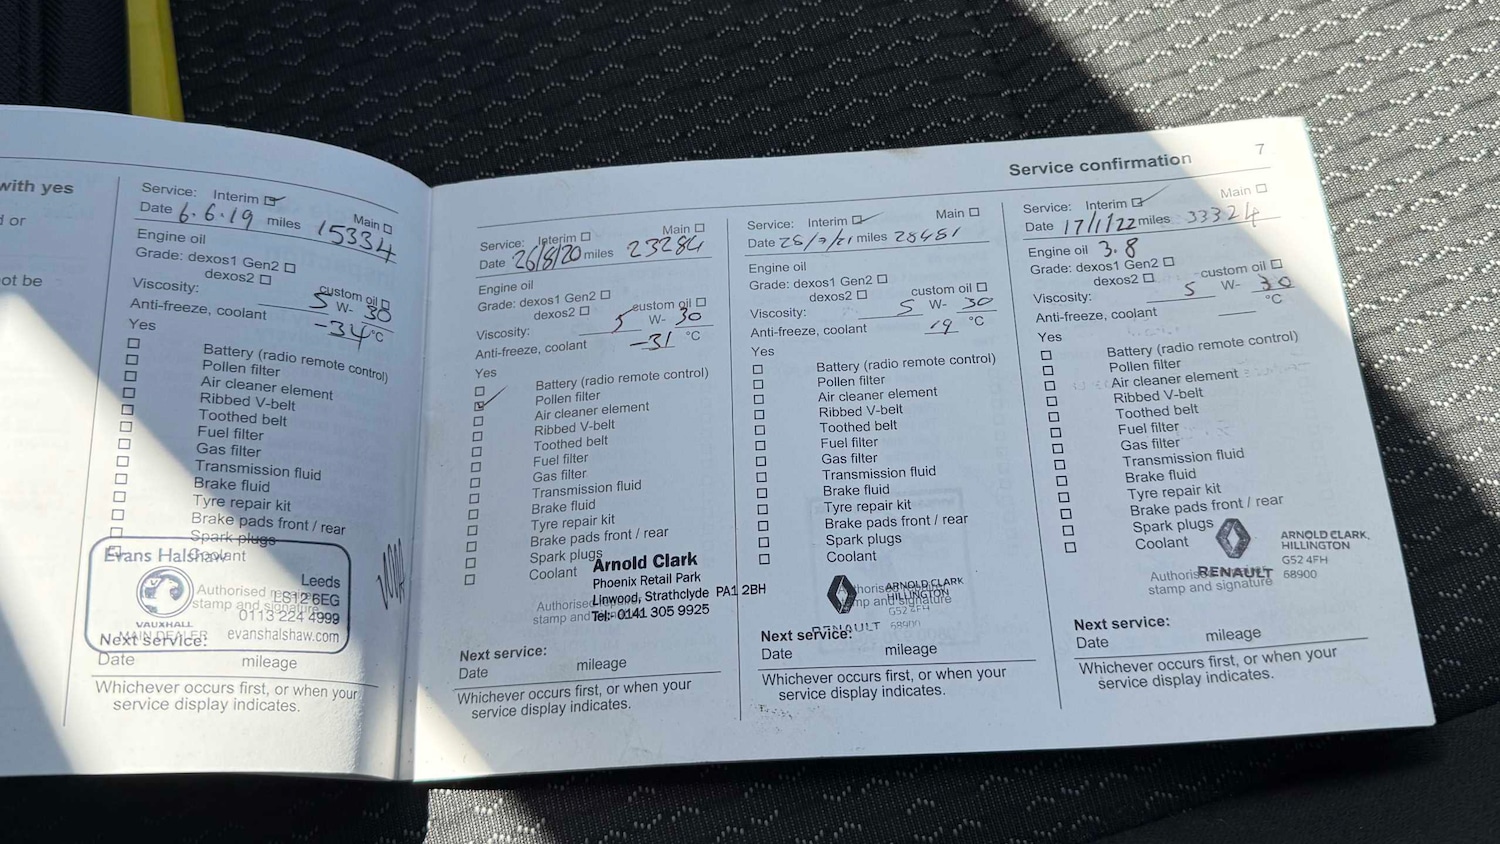 with yes
d or
ot be
Service: Interim Main
Date 6.6.19 miles 15334
Engine oil
Grade: dexos1 Gen2
dexos2
custom oil
Viscosity: 5 W- 30
Anti-freeze, coolant -34 °C
Yes
Battery (radio remote control)
Pollen filter
Air cleaner element
Ribbed V-belt
Toothed belt
Fuel filter
Gas filter
Transmission fluid
Brake fluid
Tyre repair kit
Brake pads front / rear
Spark plugs
Coolant
Evans Halshaw
Leeds
Authorised
LS12 6EG
stamp and signature
0113 224 4999
VAUXHALL
MAIN DEALER evanshalshaw.com
Next service:
Date mileage
Whichever occurs first, or when your
service display indicates.
Service confirmation 7
Service: Interim Main
Date 26/8/20 miles 23284
Engine oil
Grade: dexos1 Gen2
dexos2 custom oil
Viscosity: 5 W- 30
Anti-freeze, coolant -31 °C
Yes
Battery (radio remote control)
Pollen filter
Air cleaner element
Ribbed V-belt
Toothed belt
Fuel filter
Gas filter
Transmission fluid
Brake fluid
Tyre repair kit
Brake pads front / rear
Spark plugs
Coolant
Arnold Clark
Phoenix Retail Park
Linwood, Strathclyde PA1 2BH
Tel:- 0141 305 9925
Authorised
stamp and
Next service:
Date mileage
Whichever occurs first, or when your
service display indicates.
Service: Interim Main
Date miles 28481
Engine oil
Grade: dexos1 Gen2
dexos2 custom oil
Viscosity: 5 W- 30
Anti-freeze, coolant 19 °C
Yes
Battery (radio remote control)
Pollen filter
Air cleaner element
Ribbed V-belt
Toothed belt
Fuel filter
Gas filter
Transmission fluid
Brake fluid
Tyre repair kit
Brake pads front / rear
Spark plugs
Coolant
ARNOLD CLARK
HILLINGTON
G52 4FH
RENAULT 68900
Authorised
stamp and signature
Next service:
Date mileage
Whichever occurs first, or when your
service display indicates.
Service: Interim Main
Date 17/1/22 miles 33324
Engine oil 3.8
Grade: dexos1 Gen2
dexos2 custom oil
Viscosity: 5 W- 30
Anti-freeze, coolant °C
Yes
Battery (radio remote control)
Pollen filter
Air cleaner element
Ribbed V-belt
Toothed belt
Fuel filter
Gas filter
Transmission fluid
Brake fluid
Tyre repair kit
Brake pads front / rear
Spark plugs
Coolant
ARNOLD CLARK,
HILLINGTON
G52 4FH
RENAULT 68900
Authorised
stamp and signature
Next service:
Date mileage
Whichever occurs first, or when your
service display indicates.